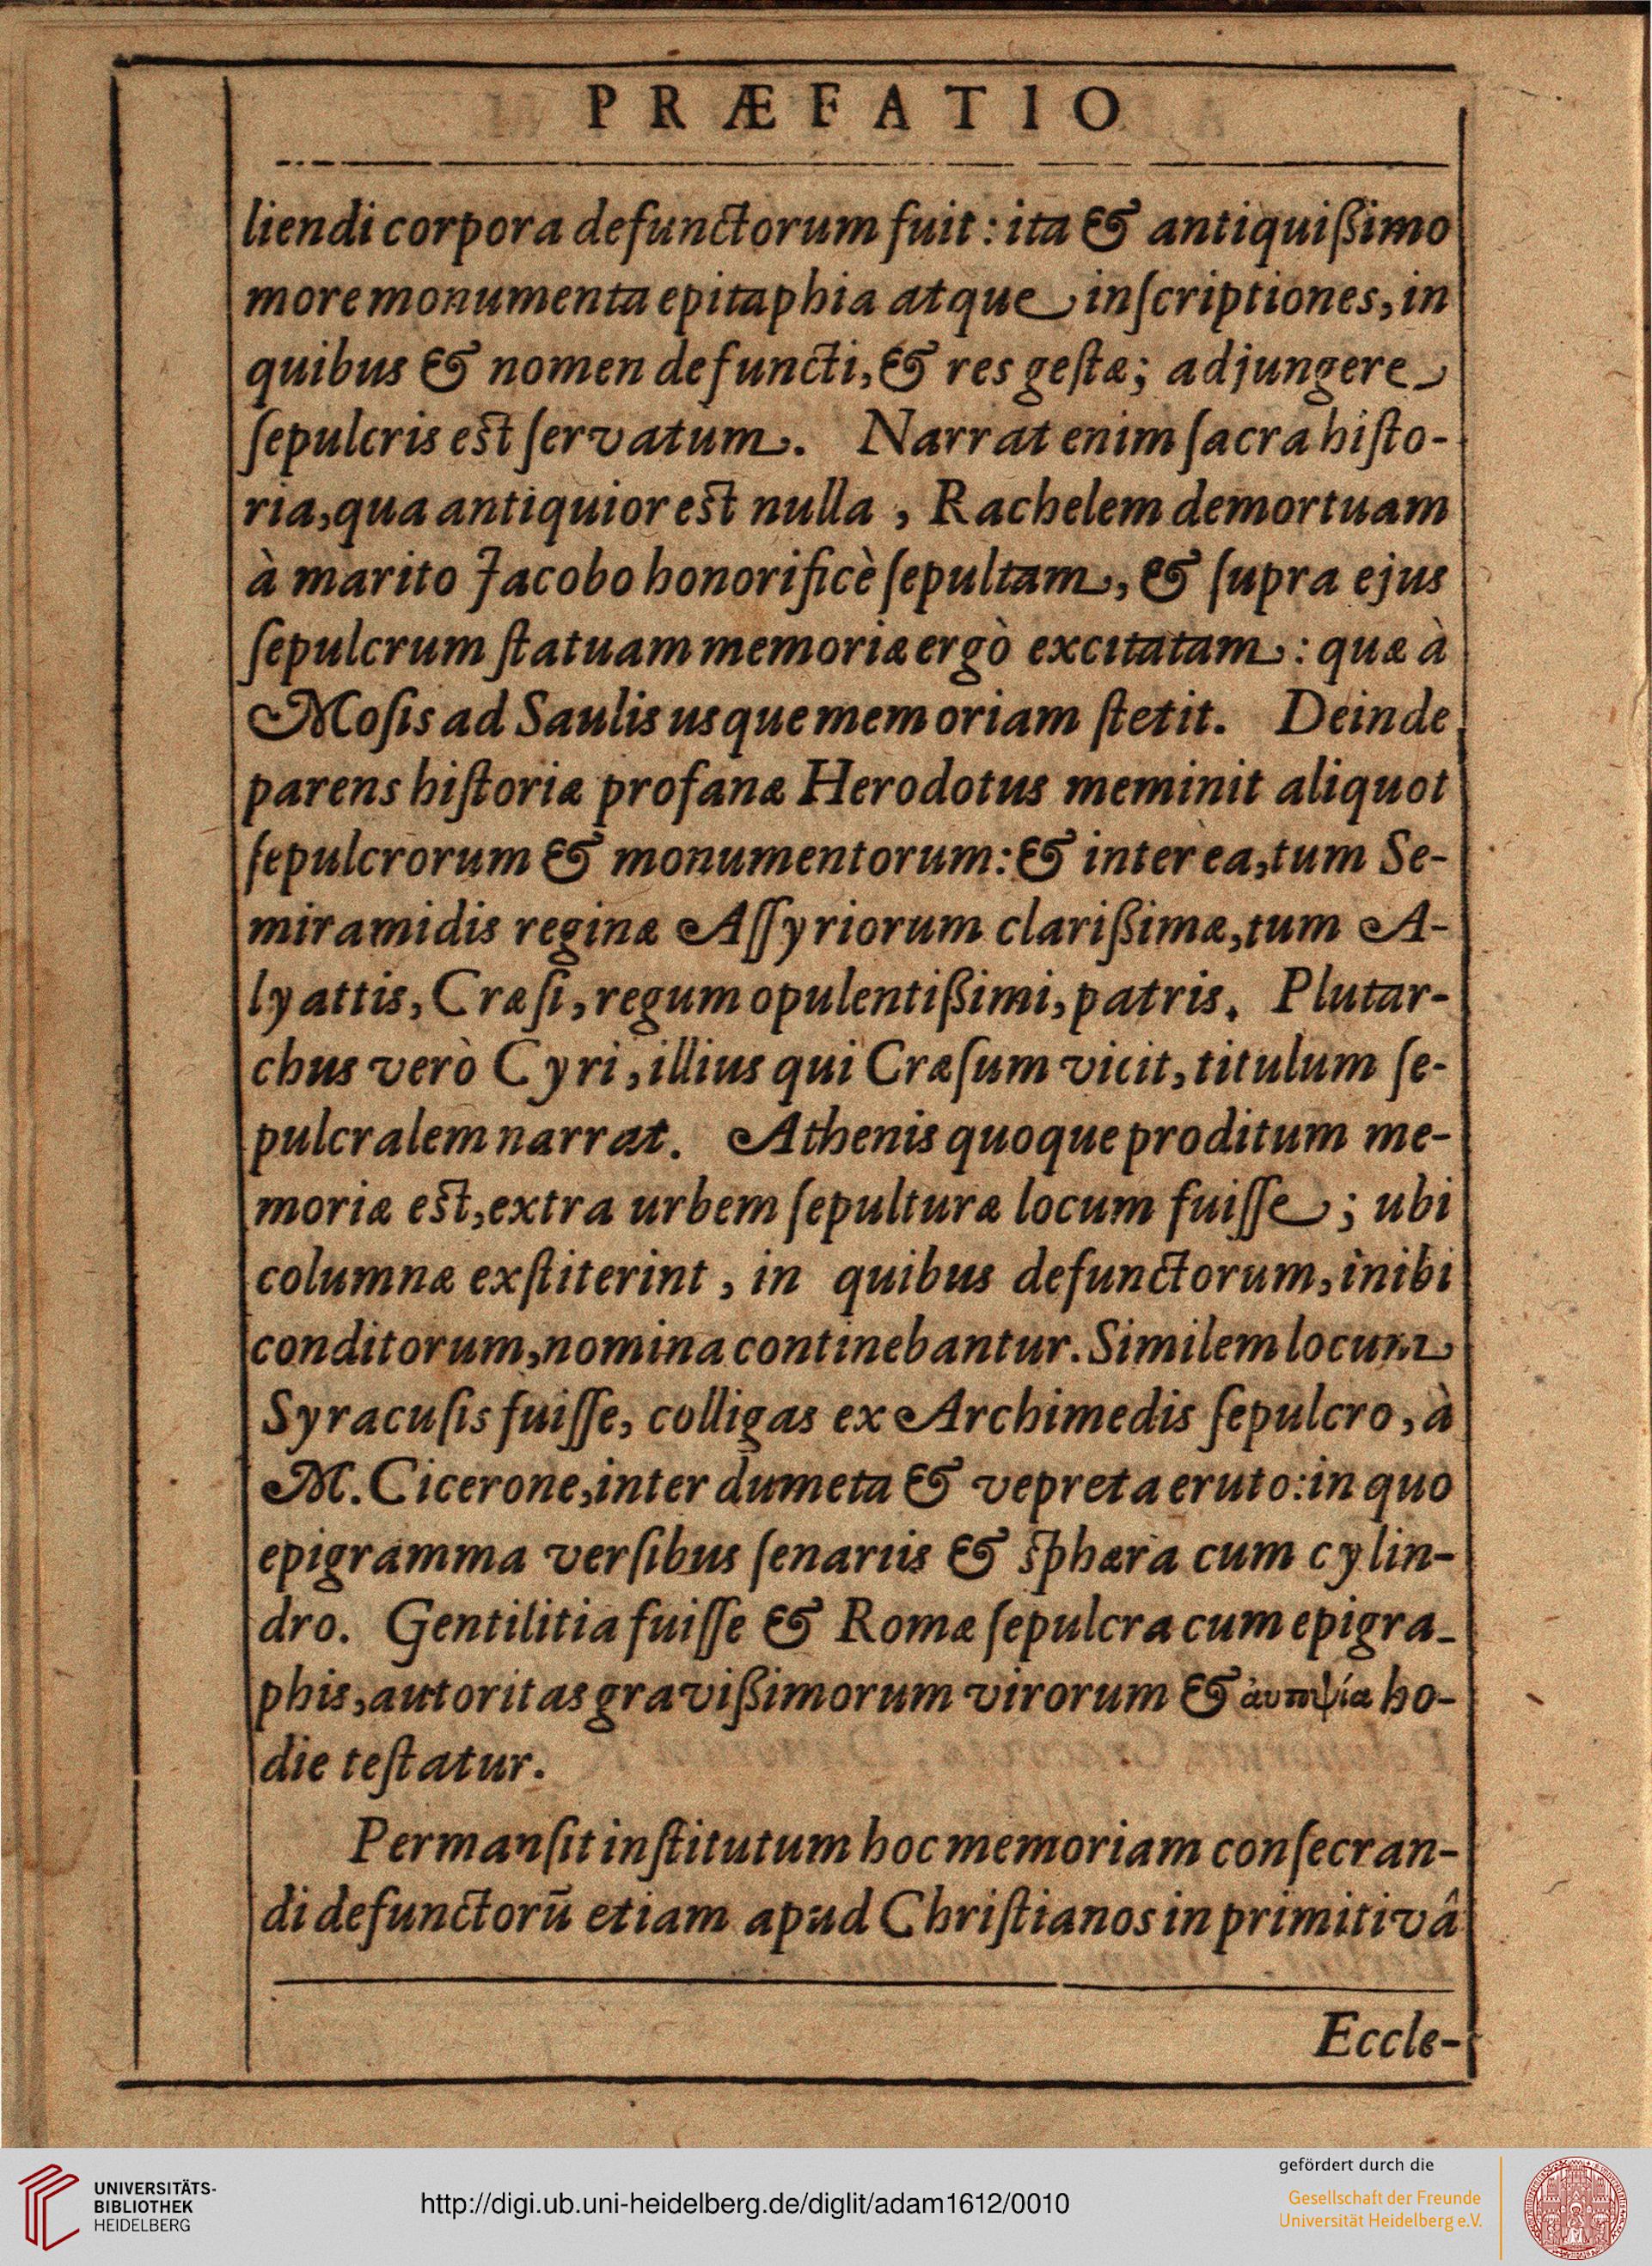 PRÆFATIO
liendi corpora defunctorum fuit: ita & antiquißimo
more monumenta epitaphia atque inſcriptiones, in
quibus & nomen defuncti, & res geſtæ; adjungere
ſepulcris est ſervatum. Narrat enim ſacra hiſto-
ria, qua antiquior est nulla, Rachelem demortuam
à marito Jacobo honorificè ſepultam, & ſupra ejus
ſepulcrum ſtatuam memoriæ ergò excitatam: quæ à
Moſis ad Saulis usque memoriam ſtetit. Deinde
parens hiſtoriæ profanæ Herodotus meminit aliquot
ſepulcrorum & monumentorum: & inter ea, tum Se-
miramidis reginæ Aſſyriorum clarißimæ, tum A-
lyattis, Cræſi, regum opulentißimi, patris. Plutar-
chus verò Cyri, illius qui Cræſum vicit, titulum ſe-
pulcralem narrat. Athenis quoque proditum me-
moriæ est, extra urbem ſepulturæ locum fuiſſe; ubi
columnæ exſtiterint, in quibus defunctorum, inibi
conditorum, nomina continebantur. Similem locum
Syracuſis fuiſſe, colligas ex Archimedis ſepulcro, à
M. Cicerone, inter dumeta & vepreta eruto: in quo
epigramma verſibus ſenariis & sphæra cum cylin-
dro. Gentilitia fuiſſe & Romæ ſepulcra cum epigra-
phis, autoritas gravißimorum virorum & ἀυτοψία ho-
die teſtatur.
Permanſit inſtitutum hoc memoriam conſecran-
di defunctorū etiam apud Chriſtianos in primitivâ
Eccle-
UNIVERSITÄTS-
BIBLIOTHEK
HEIDELBERG
http://digi.ub.uni-heidelberg.de/diglit/adam1612/0010
gefördert durch die
Gesellschaft der Freunde
Universität Heidelberg e.V.